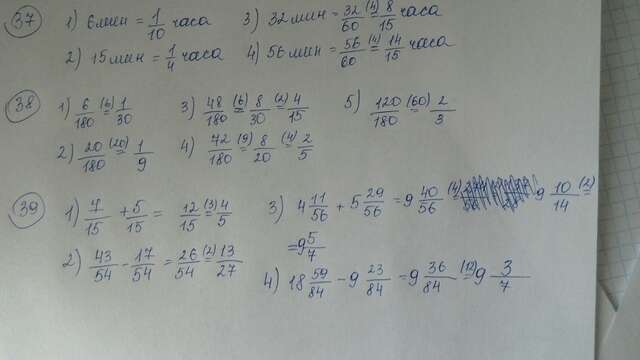 37 1) 6 мин = 1/10 часа 3) 32 мин = 32/60 (4)= 8/15 часа
2) 15 мин = 1/4 часа 4) 56 мин = 56/60 (4)= 14/15 часа
38 1) 6/180 (6)= 1/30 3) 48/180 (6)= 8/30 (2)= 4/15 5) 120/180 (60)= 2/3
2) 20/180 (20)= 1/9 4) 72/180 (9)= 8/20 (4)= 2/5
39 1) 7/15 + 5/15 = 12/15 (3)= 4/5 3) 4 11/56 + 5 29/56 = 9 40/56 (4)= 9 10/14 (2)=
= 9 5/7
2) 43/54 - 17/54 = 26/54 (2)= 13/27
4) 18 59/84 - 9 23/84 = 9 36/84 (12)= 9 3/7